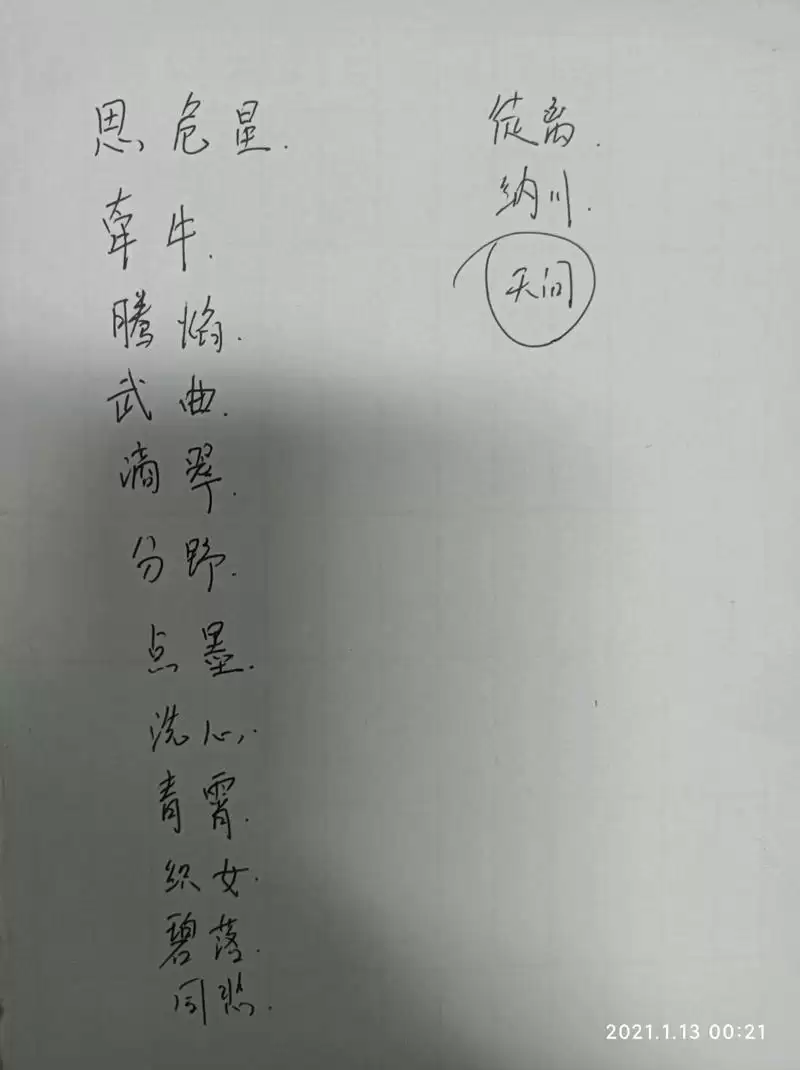 思危星.
牵牛.
腾焰.
武曲.
滴翠.
分野.
点墨.
洗心.
青霄.
织女.
碧落.
同悲.
徒离.
纳川.
天间
2021.1.13 00:21